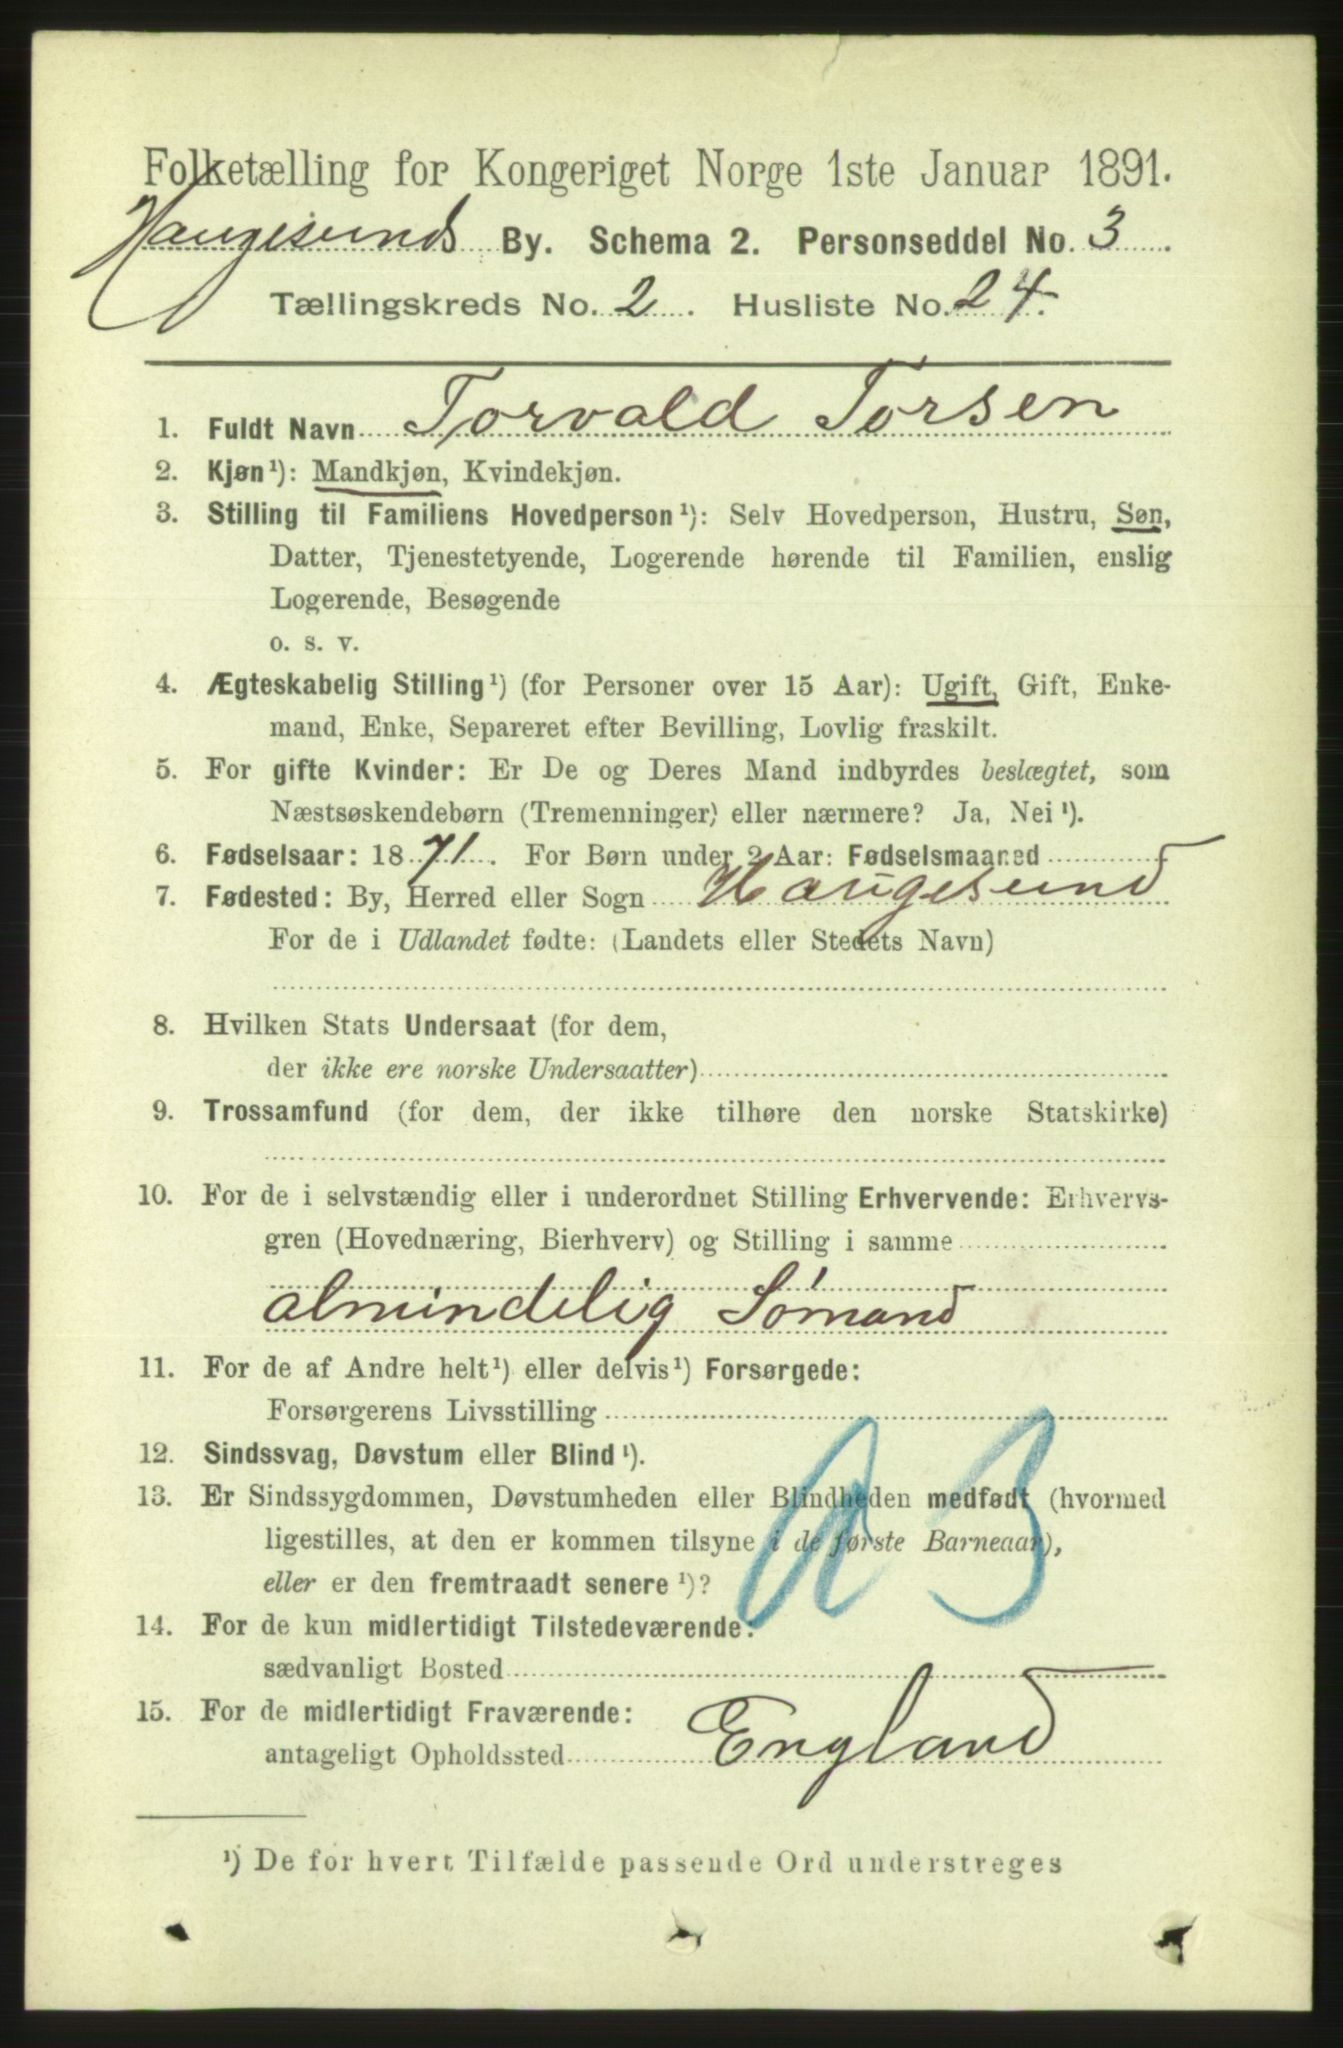 Folketælling for Kongeriget Norge 1ste Januar 1891.
Haugesunds By. Schema 2. Personseddel No. 3
Tællingskreds No. 2. Husliste No. 24.
1. Fuldt Navn Torvald Torsen
2. Kjøn¹): Mandkjøn, Kvindekjøn.
3. Stilling til Familiens Hovedperson¹): Selv Hovedperson, Hustru, Søn,
Datter, Tjenestetyende, Logerende hørende til Familien, enslig
Logerende, Besøgende
o. s. v.
4. Ægteskabelig Stilling¹) (for Personer over 15 Aar): Ugift, Gift, Enke-
mand, Enke, Separeret efter Bevilling, Lovlig fraskilt.
5. For gifte Kvinder: Er De og Deres Mand indbyrdes beslægtet, som
Næstsøskendebørn (Tremenninger) eller nærmere? Ja, Nei¹).
6. Fødselsaar: 1871. For Børn under 2 Aar: Fødselsmaaned
7. Fødested: By, Herred eller Sogn Haugesund
For de i Udlandet fødte: (Landets eller Stedets Navn)
8. Hvilken Stats Undersaat (for dem,
der ikke ere norske Undersaatter)
9. Trossamfund (for dem, der ikke tilhøre den norske Statskirke)
10. For de i selvstændig eller i underordnet Stilling Erhvervende: Erhvervs-
gren (Hovednæring, Bierhverv) og Stilling i samme
almindelig Sømand
11. For de af Andre helt¹) eller delvis¹) Forsørgede:
Forsørgerens Livsstilling
12. Sindssvag, Døvstum eller Blind¹).
13. Er Sindssygdommen, Døvstumheden eller Blindheden medfødt (hvormed
ligestilles, at den er kommen tilsyne i de første Barneaar),
eller er den fremtraadt senere¹)?
14. For de kun midlertidigt Tilstedeværende:
sædvanligt Bosted
15. For de midlertidigt Fraværende:
antageligt Opholdssted England
¹) De for hvert Tilfælde passende Ord understreges